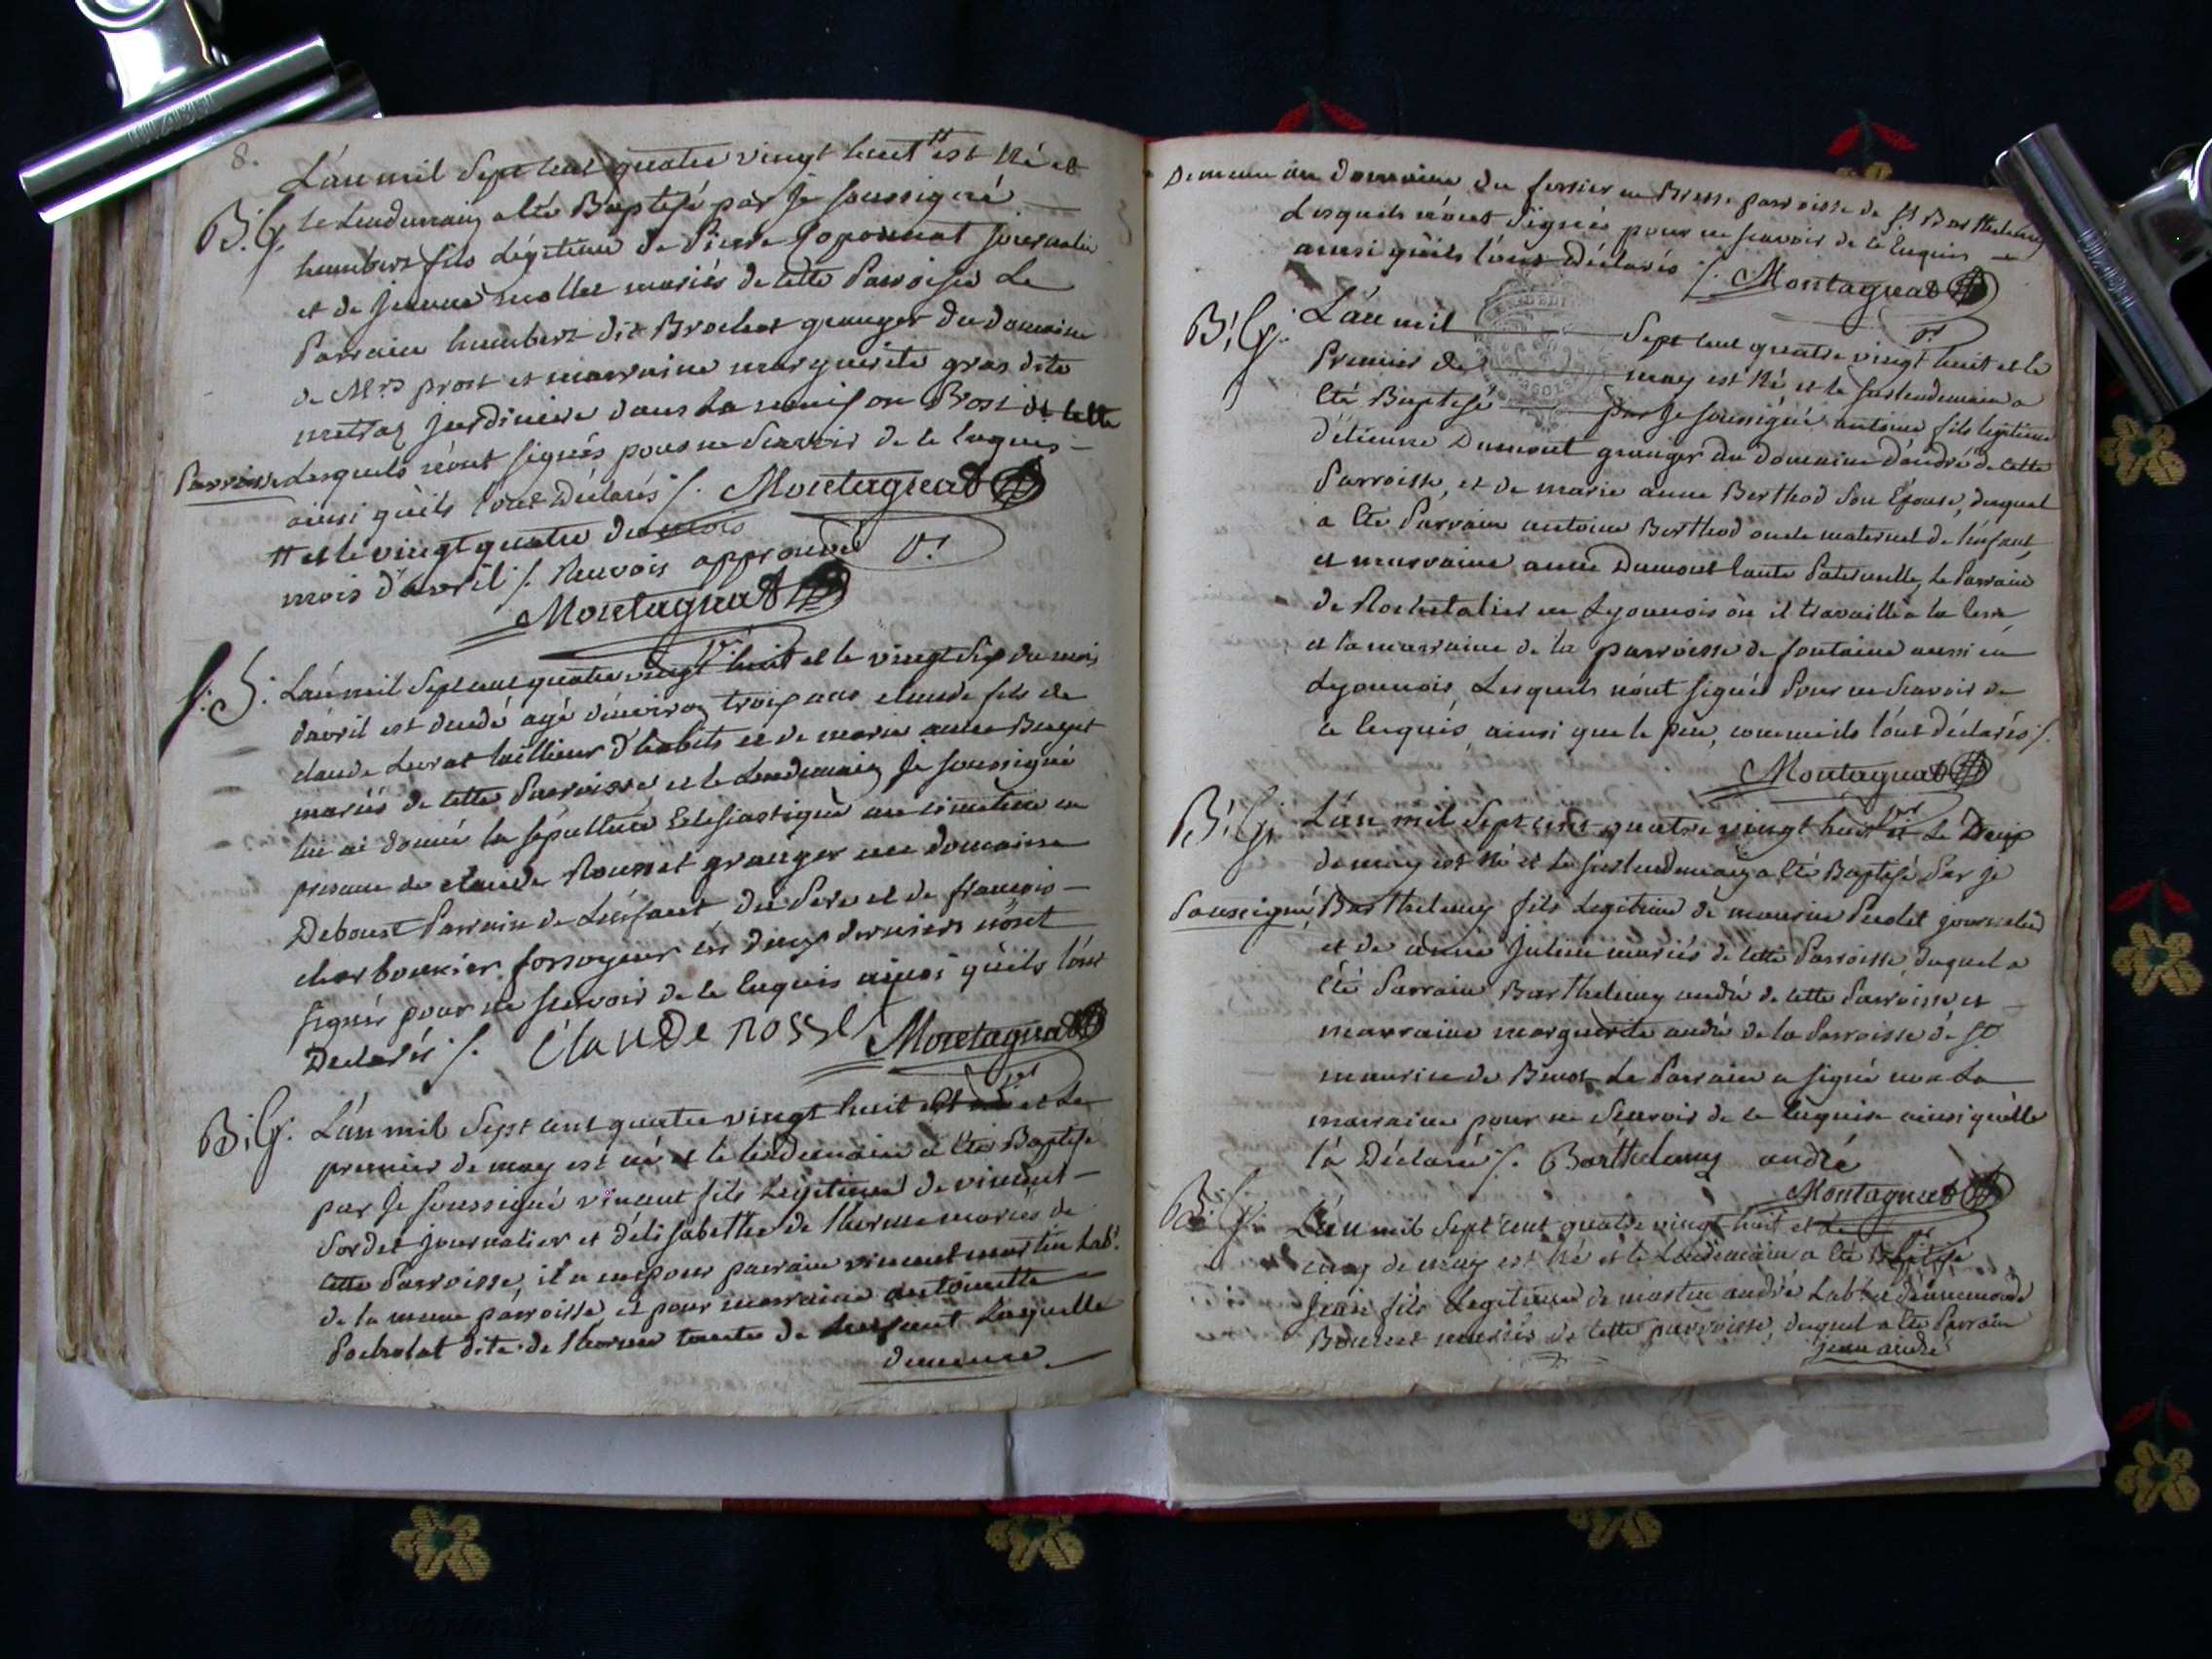 8.
L'an mil Sept cent quatre vingt huit # est Né et
B. G. le Lendemain a été Baptisé par Je soussigné
humbert fils Légitime de Pierre Joponnat journalier
et de Jeanne mollet mariés de cette Parroisse Le
Parrain humbert dit Brochet granger du domaine
de Mrs prost et marraine marguerite gras dite
metraz Jardiniere dans la maison Prost de cette
Parroisse Lesquels n'ont signés pour ne Scavoir de ce Enquis
ainsi qu'ils l'ont Déclarés /. Montagnat
# et le vingt quatre du mois
mois d'avril /. Renvois approuvé
Montagnat
S. L'an mil Sept cent quatre vingt huit et le vingt Six du mois
d'avril est décédé agé d'environ trois ans claude fils de
claude Livrat tailleur d'habits et de marie anne Buget
mariés de cette Parroisse et le Lendemain Je soussigné
lui ai donné la sépulture Eclesiastique au cimetiere en
presence de claude Rousset granger au domaine
Deboust Parrain de L'enfant, du Pere et de francois
charbonnier fossoyeur les deux derniers n'ont
signés pour ne scavoir de ce Enquis ainsi qu'ils l'ont
Declarés /. Claude rosset Montagnat
B. G. L'an mil Sept cent quatre vingt huit et Le
premier de may est né et le lendemain a été Baptisé
par Je soussigné vincent fils Légitime de vincent
Sordet journalier et d'élisabethe de l'horme mariés de
cette Parroisse, il a eu pour parrain vincent martin Lab.
de la meme parroisse, et pour marraine antoinette
Pocholat dite de l'horme tante de L'enfant Laquelle
demeure
Demeure au domaine du ferrier en Bresse parroisse de St Barthelemy
Lesquels n'ont Signés pour ne scavoir de ce Enquis
ainsi qu'ils l'ont Déclarés /. Montagnat
B. G. L'an mil Sept cent quatre vingt huit et le
Premier de may est Né et le surlendemain a
été Baptisé par Je soussigné antoine fils légitime
d'étienne Dumont granger du domaine d'andré de cette
Parroisse, et de marie anne Berthod Son Epouse, duquel
a été Parrain antoine Berthod oncle maternel de l'enfant,
et marraine anne Dumont tante Paternelle, Le Parrain
de Rochetalier en Lyonnois où il travaille a la terre
et la marraine de la parroisse de fontaine aussi en
Lyonnois, Lesquels n'ont signés Pour ne Scavoir de
ce Enquis, ainsi que le père, comme ils l'ont déclarés /.
Montagnat
B. G. L'an mil Sept cent quatre vingt huit et Le Deux
de may est Né et le surlendemain a été Baptisé Par je
Soussigné, Barthelemy fils Legitime de maurice Perolet journalier
et de anne Julien mariés de cette Parroisse, duquel a
été Parrain Barthelemy andré de cette Parroisse et
marraine marguerite andré de la Parroisse de St
maurice de Beinost Le Parrain a signé non La
marraine pour ne Scavoir de ce Enquise ainsi qu'elle
l'a Déclaré /. Barthelemy andré
Montagnat
B. G. L'an mil Sept cent quatre vingt huit et Le
cinq de may est Né et le Lendemain a été Baptisé
Jean fils Legitime de martin andré Lab.
mariés de cette parroisse, duquel a été Parrain
jean andré